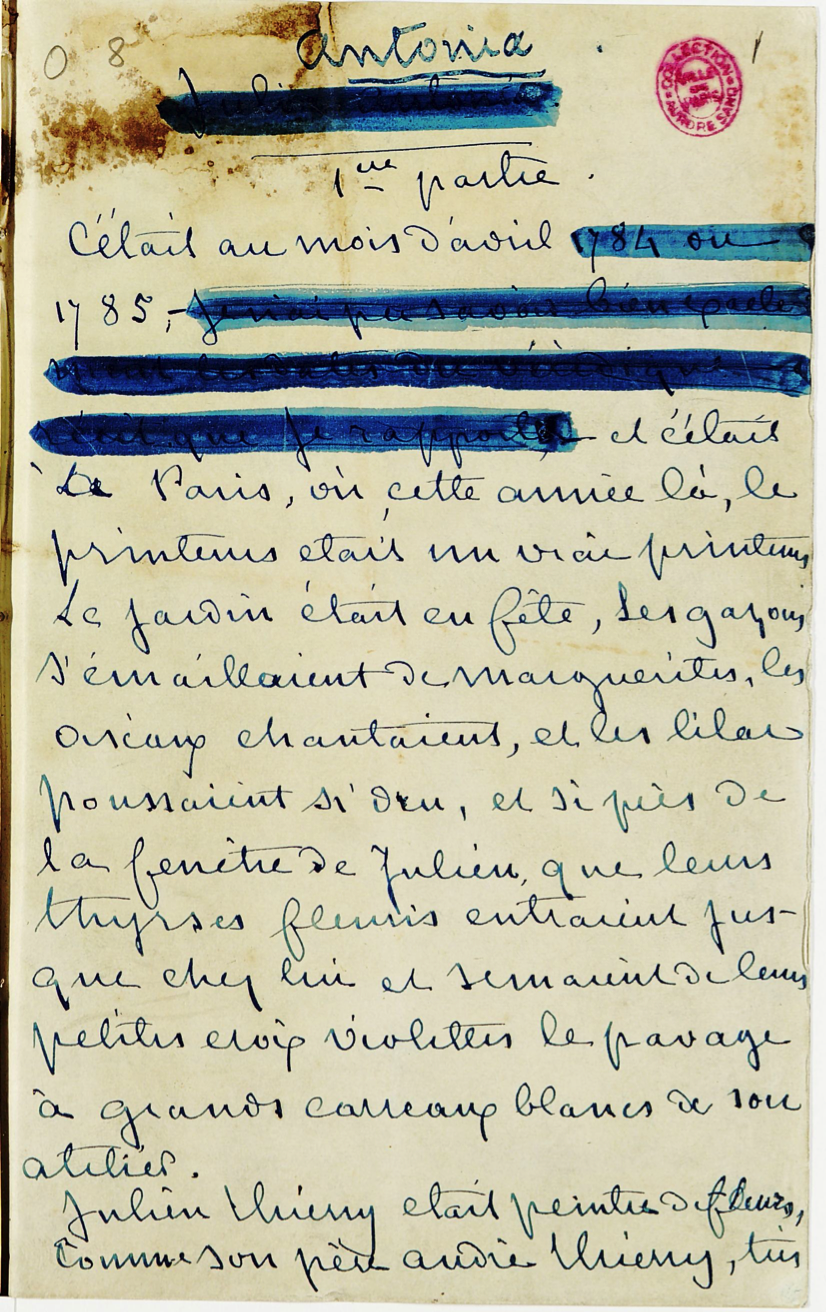 0 8
Antonia
1
COLLECTION AURORE SAND
VILLE DE PARIS
Julien Antonia.
1ère partie.
C'était au mois d'avril 1784 ou
1785, - Je n'ai pu savoir bien exacte
ment les dates du véridique
récit que je rapporte, et c'était
à Paris, où, cette année là, le
printems etait un vrai printems
Le jardin était en fête, Les gazons
s'émaillaient de marguerites, les
oiseaux chantaient, et les lilas
poussaient si dru, et si près de
la fenêtre de Julien, que leurs
thyrses fleuris entraient jus-
que chez lui et semaient de leurs
petites croix violettes le pavage
à grands carreaux blancs de son
atelier.
Julien Thierry etait peintre de fleurs,
comme son père andré Thierry, très